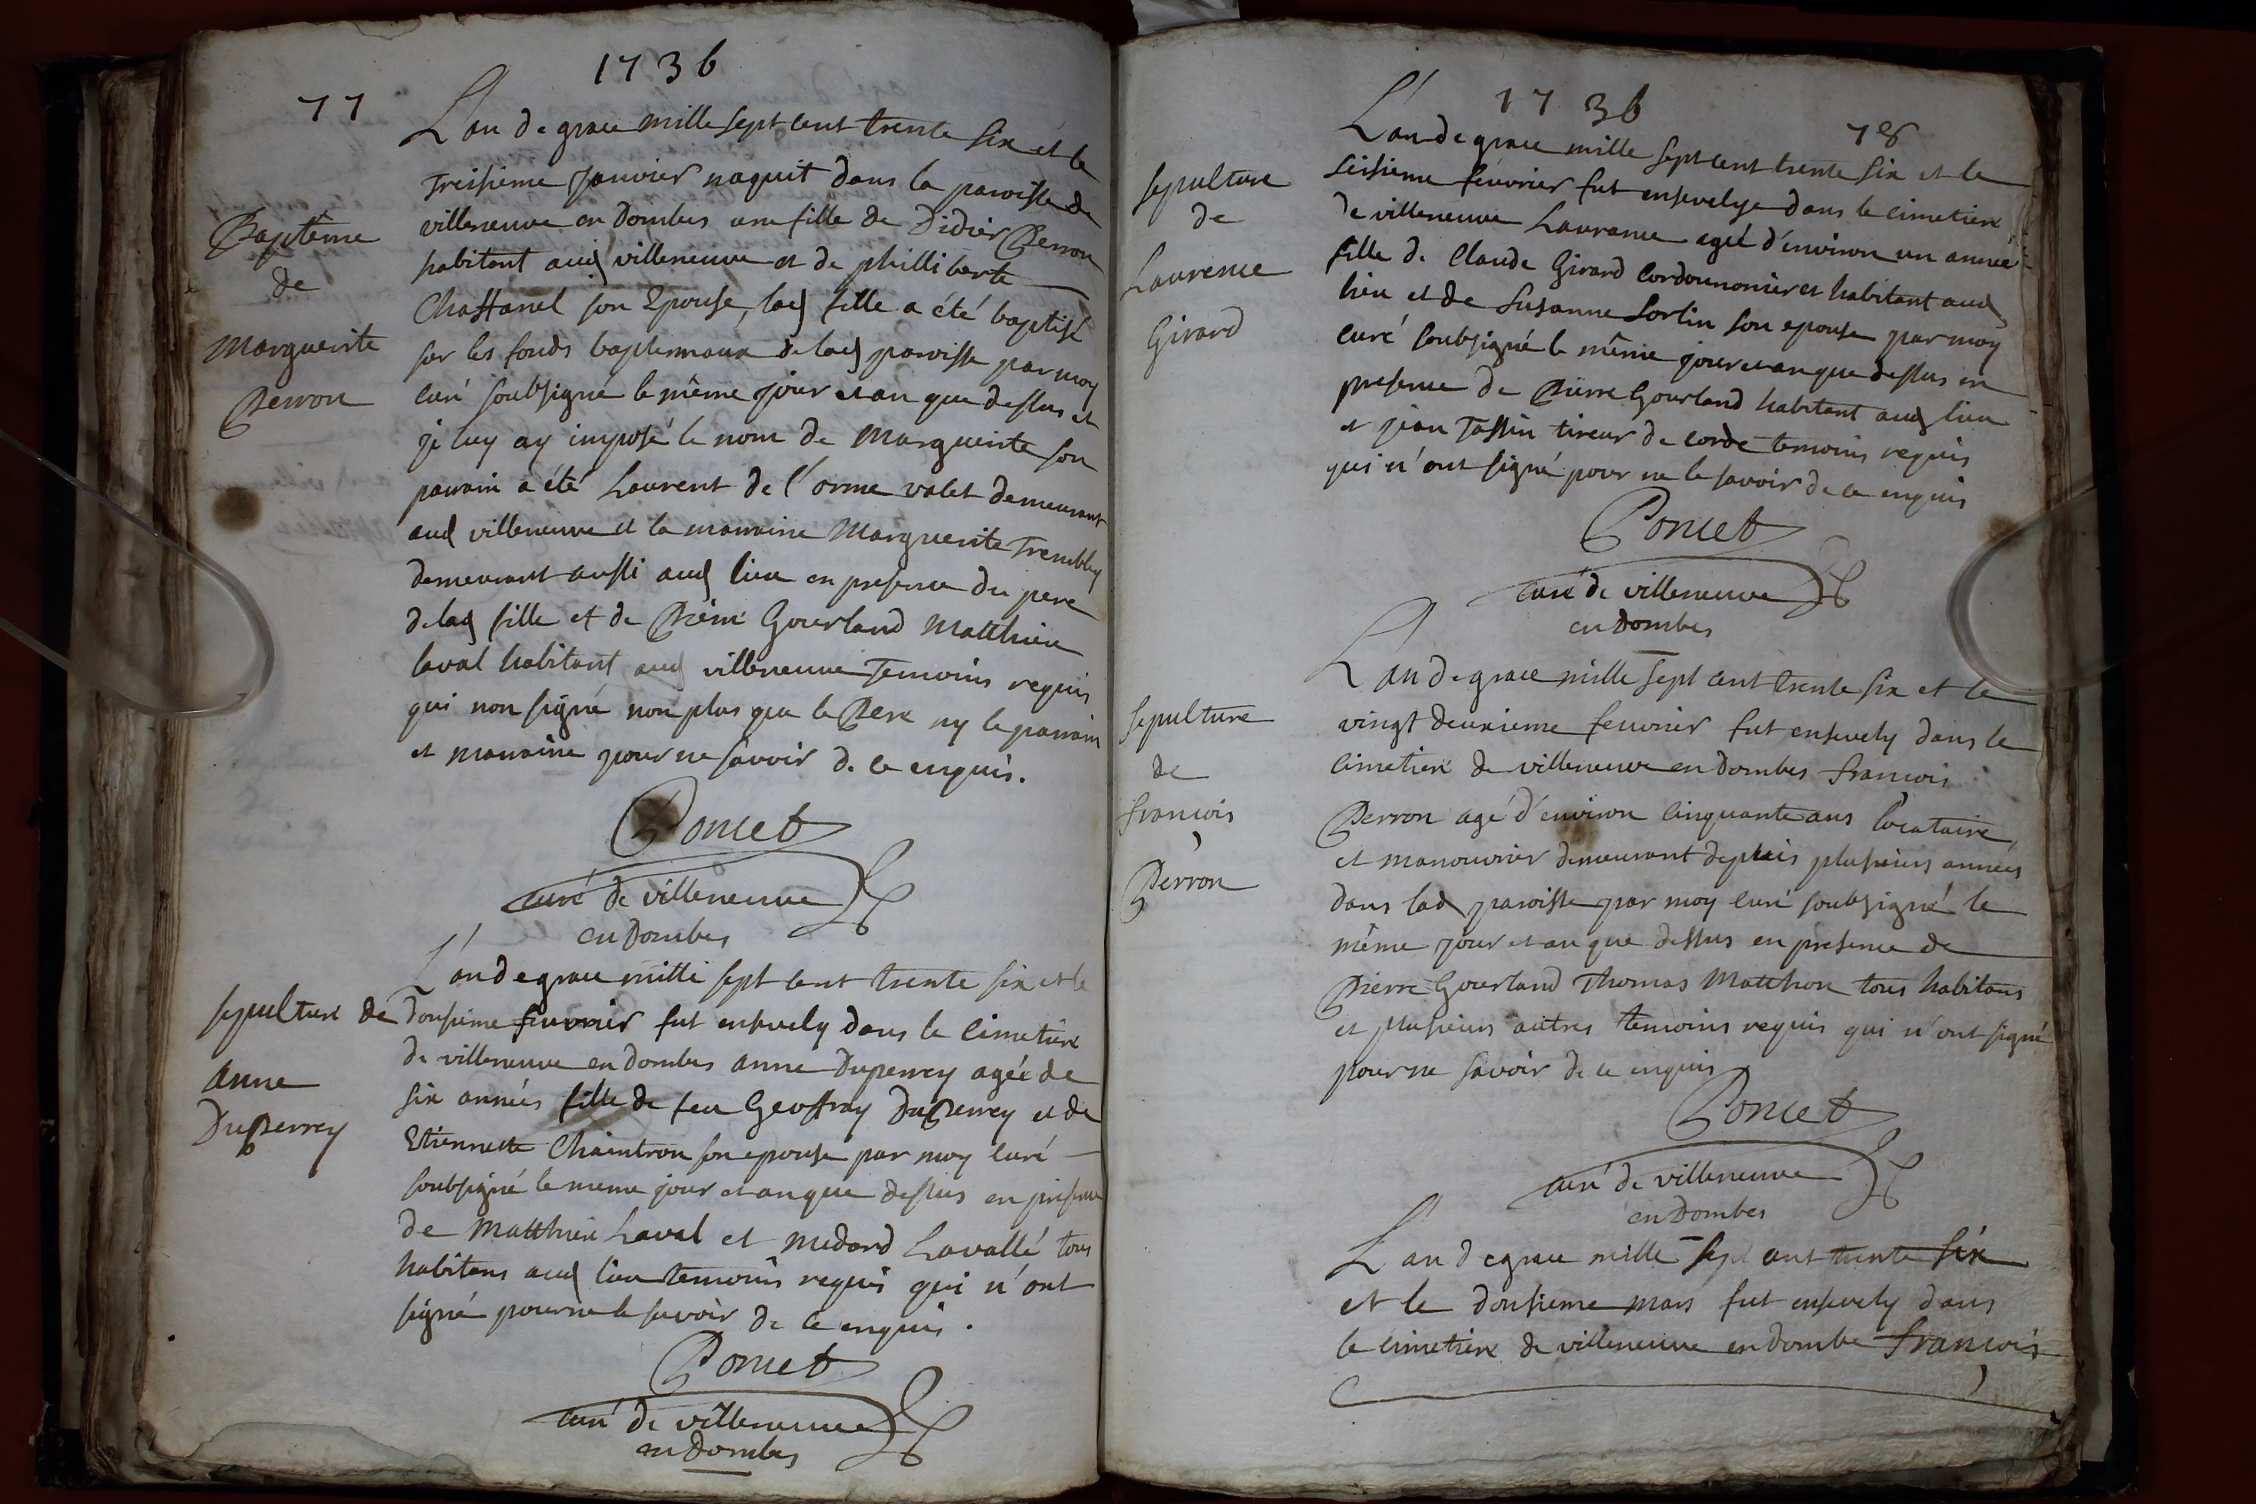 1736
77
L'an de grace mille sept cent trente six et le
treisieme janvier naquit dans la paroisse de
villeneuve en Dombes une fille de Didier Perron
habitant aud villeneuve et de phillib erte
Chattanel son Epouse, lad fille a été baptisé
sur les fonds baptismaux de lad paroisse par moy
curé soubsigné le même jour et an que dessus et
je luy ay imposé le nom de Marguerite son
parrain a été Laurent de l'orme valet demeurant
aud villeneuve et la marraine Marguerite Trembley
demeurant aussi aud lieu en presence du pere
de lad fille et de Pierre Gourland Matthieu
laval habitant aud villeneuve Temoins requis
qui non signé non plus que le Pere ny le parrain
et marraine pour ne savoir de ce enquis.
Baptême
de
Marguerite
Perron
Poncet
curé de villeneuve
en Dombes
L'an de grace mille sept cent trente six et le
sepulture de
Anne
DuPerrey
dousieme feuvrier fut ensevely dans le cimetiere
de villeneuve en dombes anne Duperrey agée de
six années fille de feu Geoffray DuPerrey et de
Etiennette Chaintron son epouse par moy curé
soubsigné le meme jour et an que dessus en presence
de Matthieu Laval et medard Lavallé tous
habitans aud lieu temoins requis qui n'ont
signé pour ne le savoir de ce enquis.
Poncet
curé de villeneuve
en Dombes
1736
78
L'an de grace mille sept cent trente six et le
seisieme feuvrier fut ensevelye dans le cimetiere
de villeneuve Laurance agée d'environ un année
fille de Claude Girard Cordounonier et habitant aud
lieu et de Susanne Sorlin son epouse par moy
curé soubsigné le même jour et an que dessus en
presence de Pierre Gourland habitant aud lieu
et jean Tassin tireur de corde temoins requis
qui n'ont signé pour ne le savoir de ce enquis
sepulture
de
Laurence
Girard
Poncet
curé de villeneuve
en Dombes
L'an de grace mille sept cent trente six et le
vingt deuxieme feuvrier fut ensevely dans le
cimetiere de villeneuve en dombes francois
Perron agé d'environ cinquante ans locataire
et manouvrier demeurant depuis plusieurs années
dans lad paroisse par moy curé soubsigné le
même jour et an que dessus en presence de
Pierre Gourland Thomas Matthion tous habitans
et plusieurs autres temoins requis qui n'ont signé
pour ne savoir de ce enquis
sepulture
de
francois
Perron
Poncet
curé de villeneuve
en Dombes
L'an de grace mille sept cent trente six
et le dousieme mars fut ensevely dans
le cimetiere de villeneuve en dombe francois